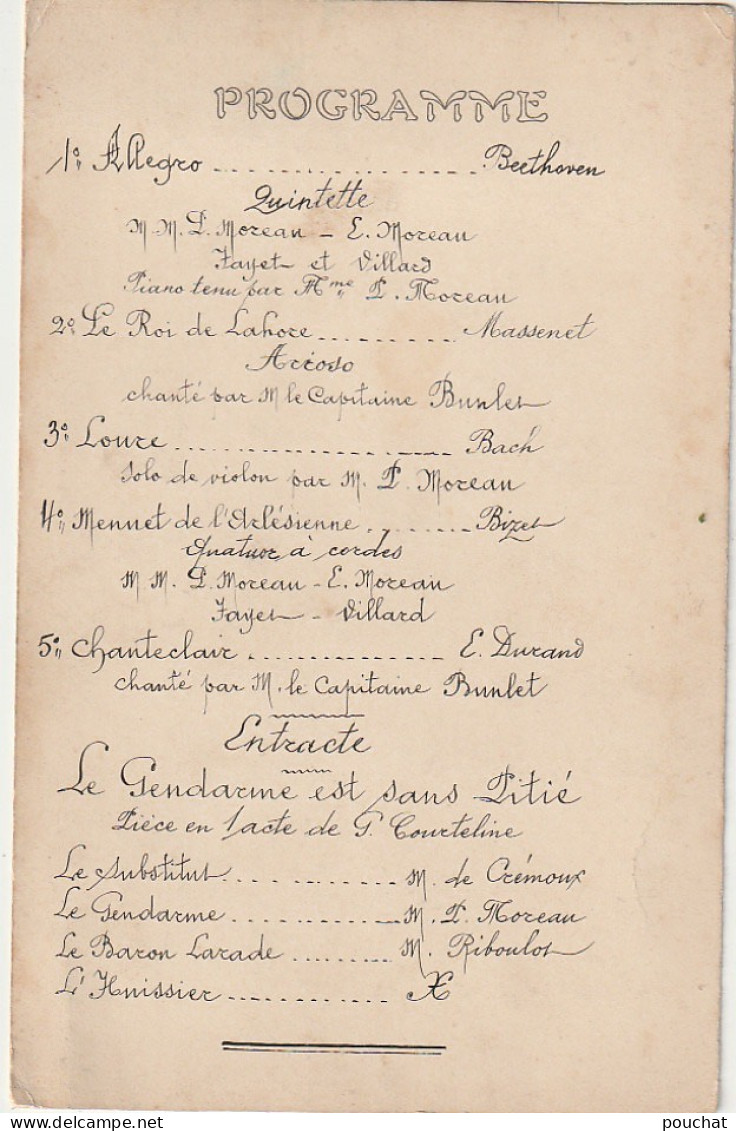 PROGRAMME
1º Allegro ................. Beethoven
Quintette
M.M. P. Moreau - E. Moreau
Fayet et Villard
Piano tenu par Mme P. Moreau
2º Le Roi de Lahore .......... Massenet
Arioso
chanté par M le Capitaine Bunlet
3º Loure .................... Bach
Solo de violon par M. P. Moreau
4º Menuet de l'Arlésienne ........ Bizet
Quatuor à cordes
M M. P. Moreau - E. Moreau
Fayet - Villard
5º Chanteclair ............... E. Durand
chanté par M. le Capitaine Bunlet
Entracte
Le Gendarme est sans Pitié
Pièce en 1 acte de G. Courteline
Le Substitut ............ M. de Crémoux
Le Gendarme ............ M. P. Moreau
Le Baron Larade ........ M. Riboulot
L'Huissier ............ X
pouchat